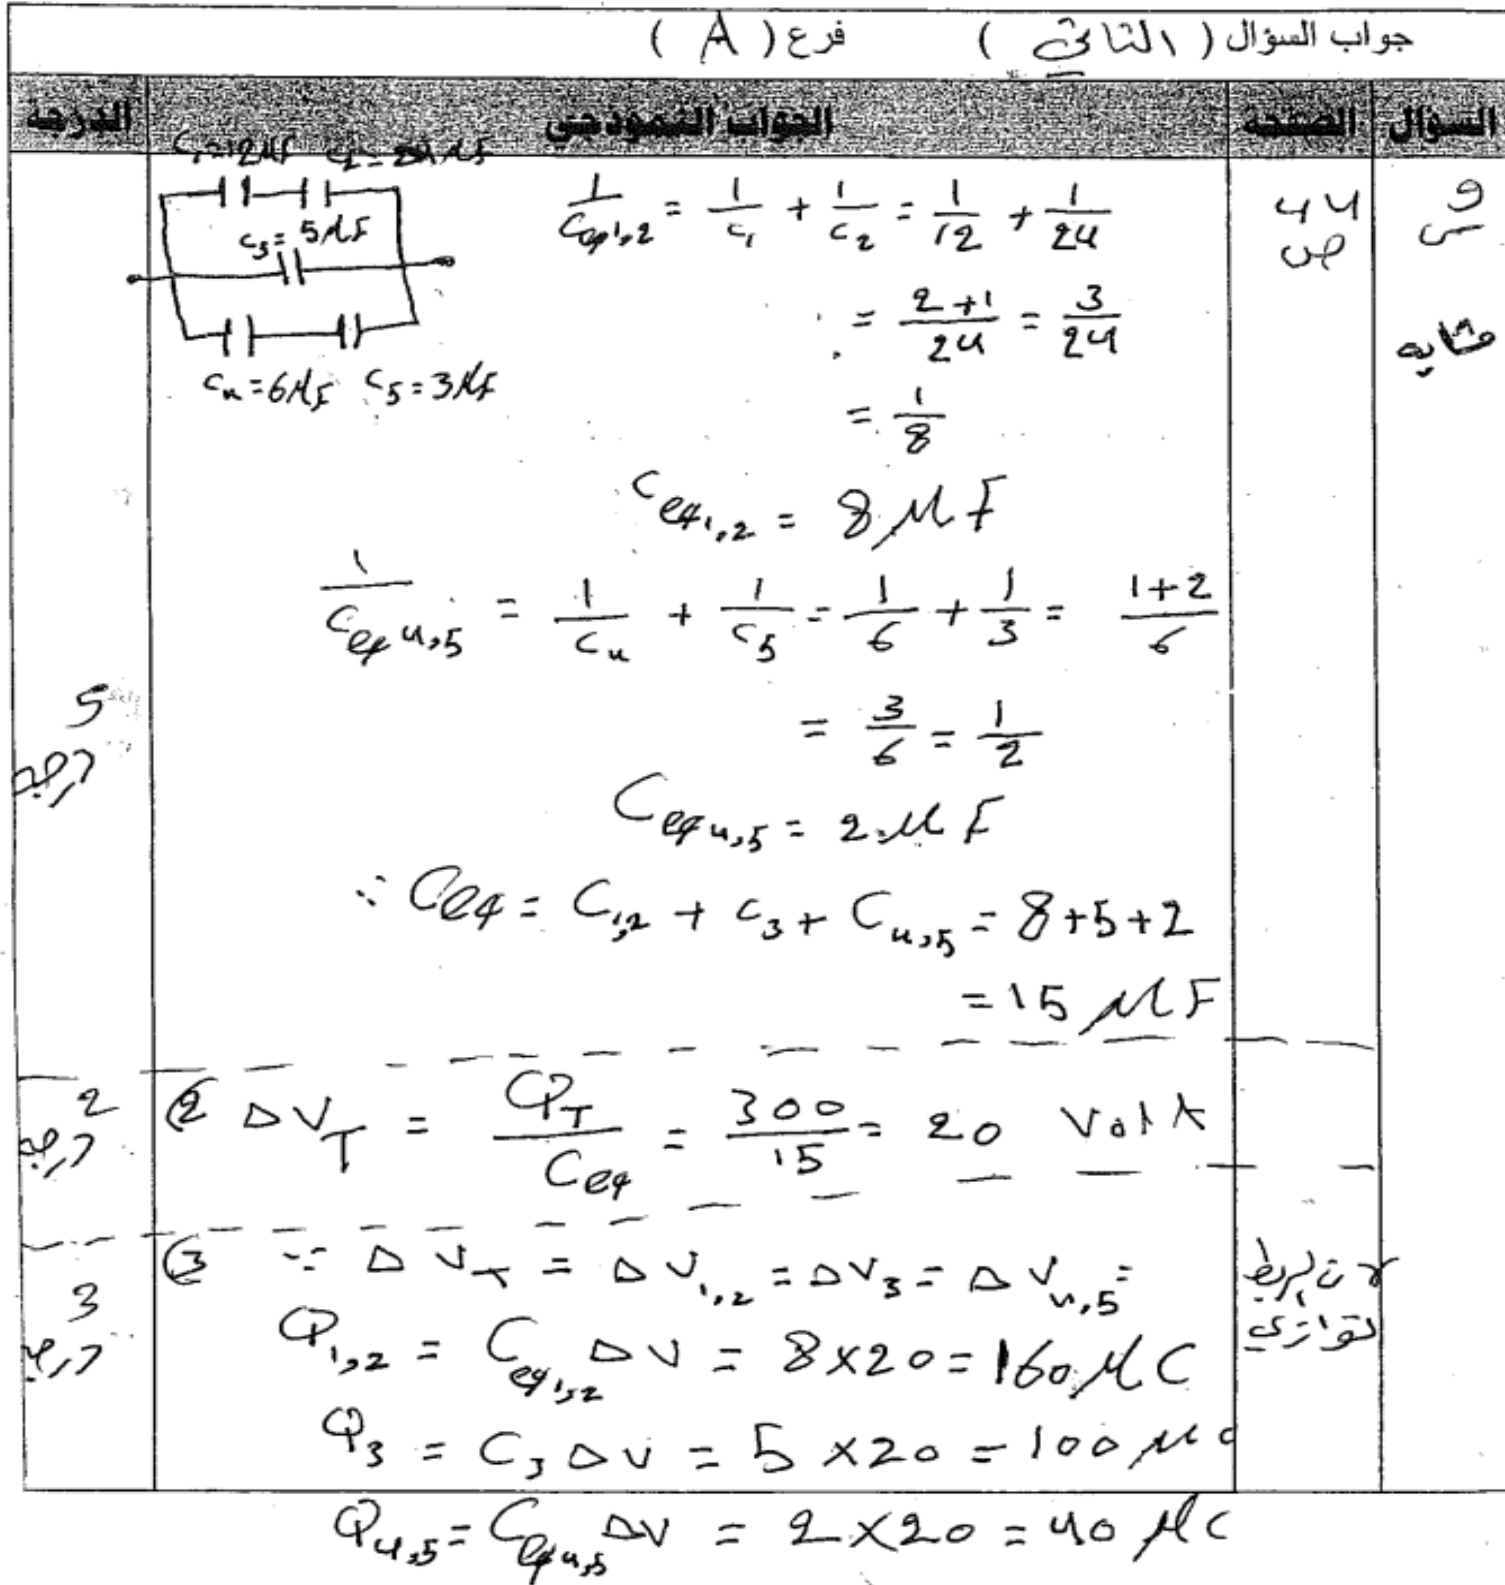 جواب السؤال ( الثاني ) فرع ( A )
السؤال الصفحة الجواب النموذجي الدرجة
C₁=12μF C₂=24μF
C₃= 5μF
C₄=6μF C₅=3μF
س9
ص44
مشابه
1/Ceq1,2 = 1/C₁ + 1/C₂ = 1/12 + 1/24
= (2+1)/24 = 3/24
= 1/8
Ceq1,2 = 8 μF
1/Ceq4,5 = 1/C₄ + 1/C₅ = 1/6 + 1/3 = (1+2)/6
= 3/6 = 1/2
Ceq4,5 = 2 μF
5 درجة
∵ Ceq = C1,2 + C₃ + C4,5 = 8+5+2
= 15 μF
2 درجة
(2 ΔV_T = Q_T/Ceq = 300/15 = 20 Volt
(3 ∵ ΔV_T = ΔV1,2 = ΔV₃ = ΔV4,5 =
لان الربط
توازي
3 درجة
Q1,2 = Ceq1,2 ΔV = 8×20 = 160 μC
Q₃ = C₃ ΔV = 5×20 = 100 μC
Q4,5 = Ceq4,5 ΔV = 2×20 = 40 μC